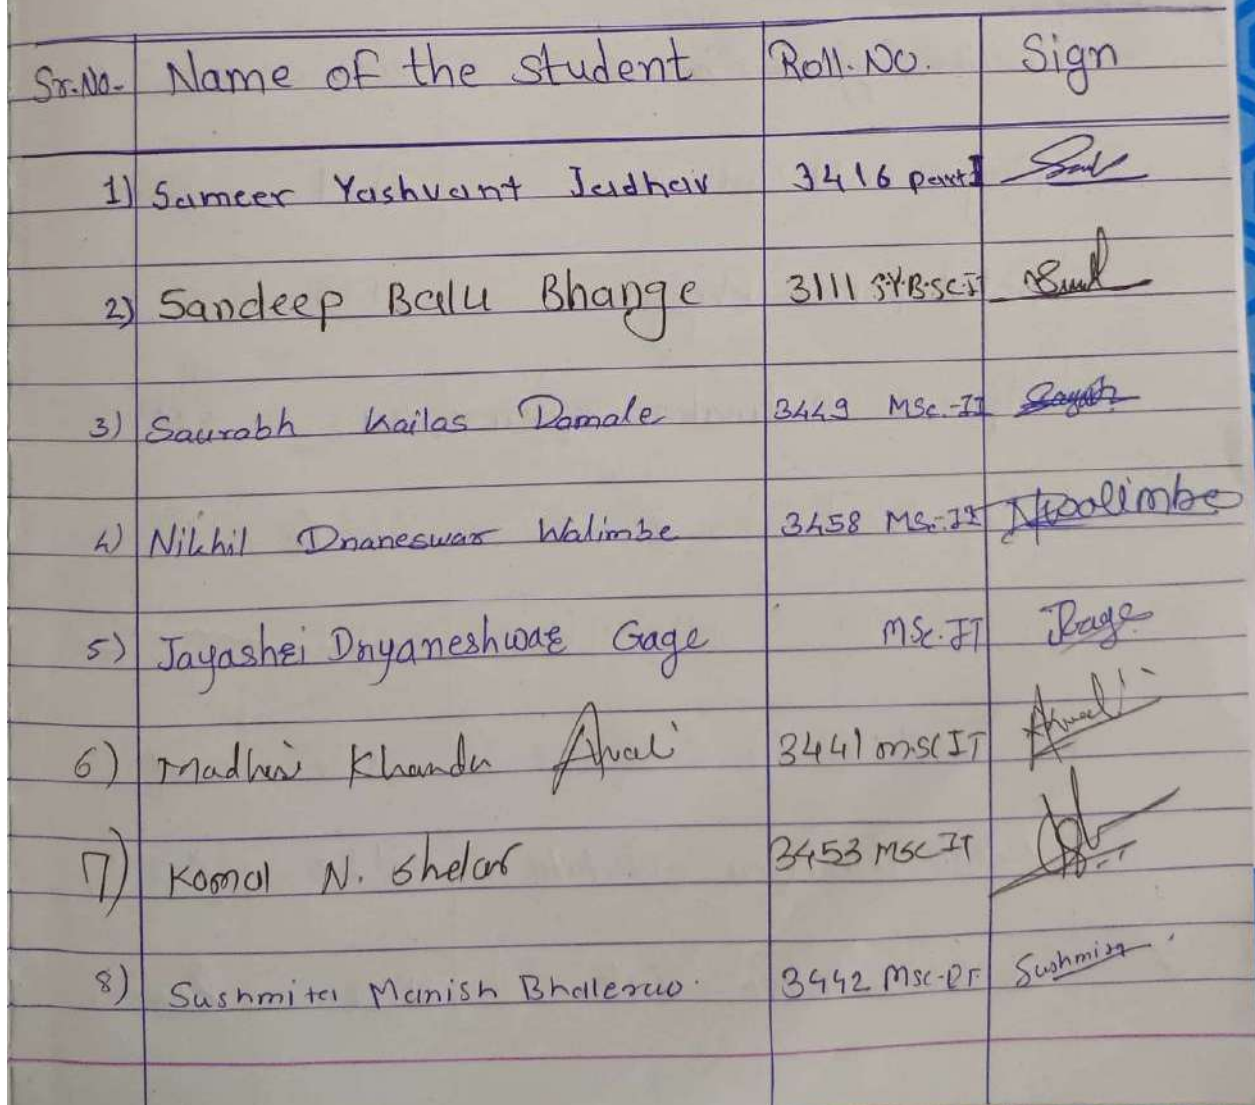 Sr.No. Name of the student Roll. No. Sign
1) Sameer Yashvant Jadhav 3416 part I
2) Sandeep Balu Bhange 3111 S.Y.B.SC.IT
3) Saurabh Kailas Damale 3449 MSc.-II
4) Nikhil Dnaneswar Walimbe 3458 MSc-II NWalimbe
5) Jayashri Dnyaneshwar Gage MSc.IT JGage
6) Madhuri Khandu 3441 m.sc IT
7) Komal N. Shelar 3453 MSC IT
8) Sushmita Manish Bhalerao. 3442 MSC- Sushmita